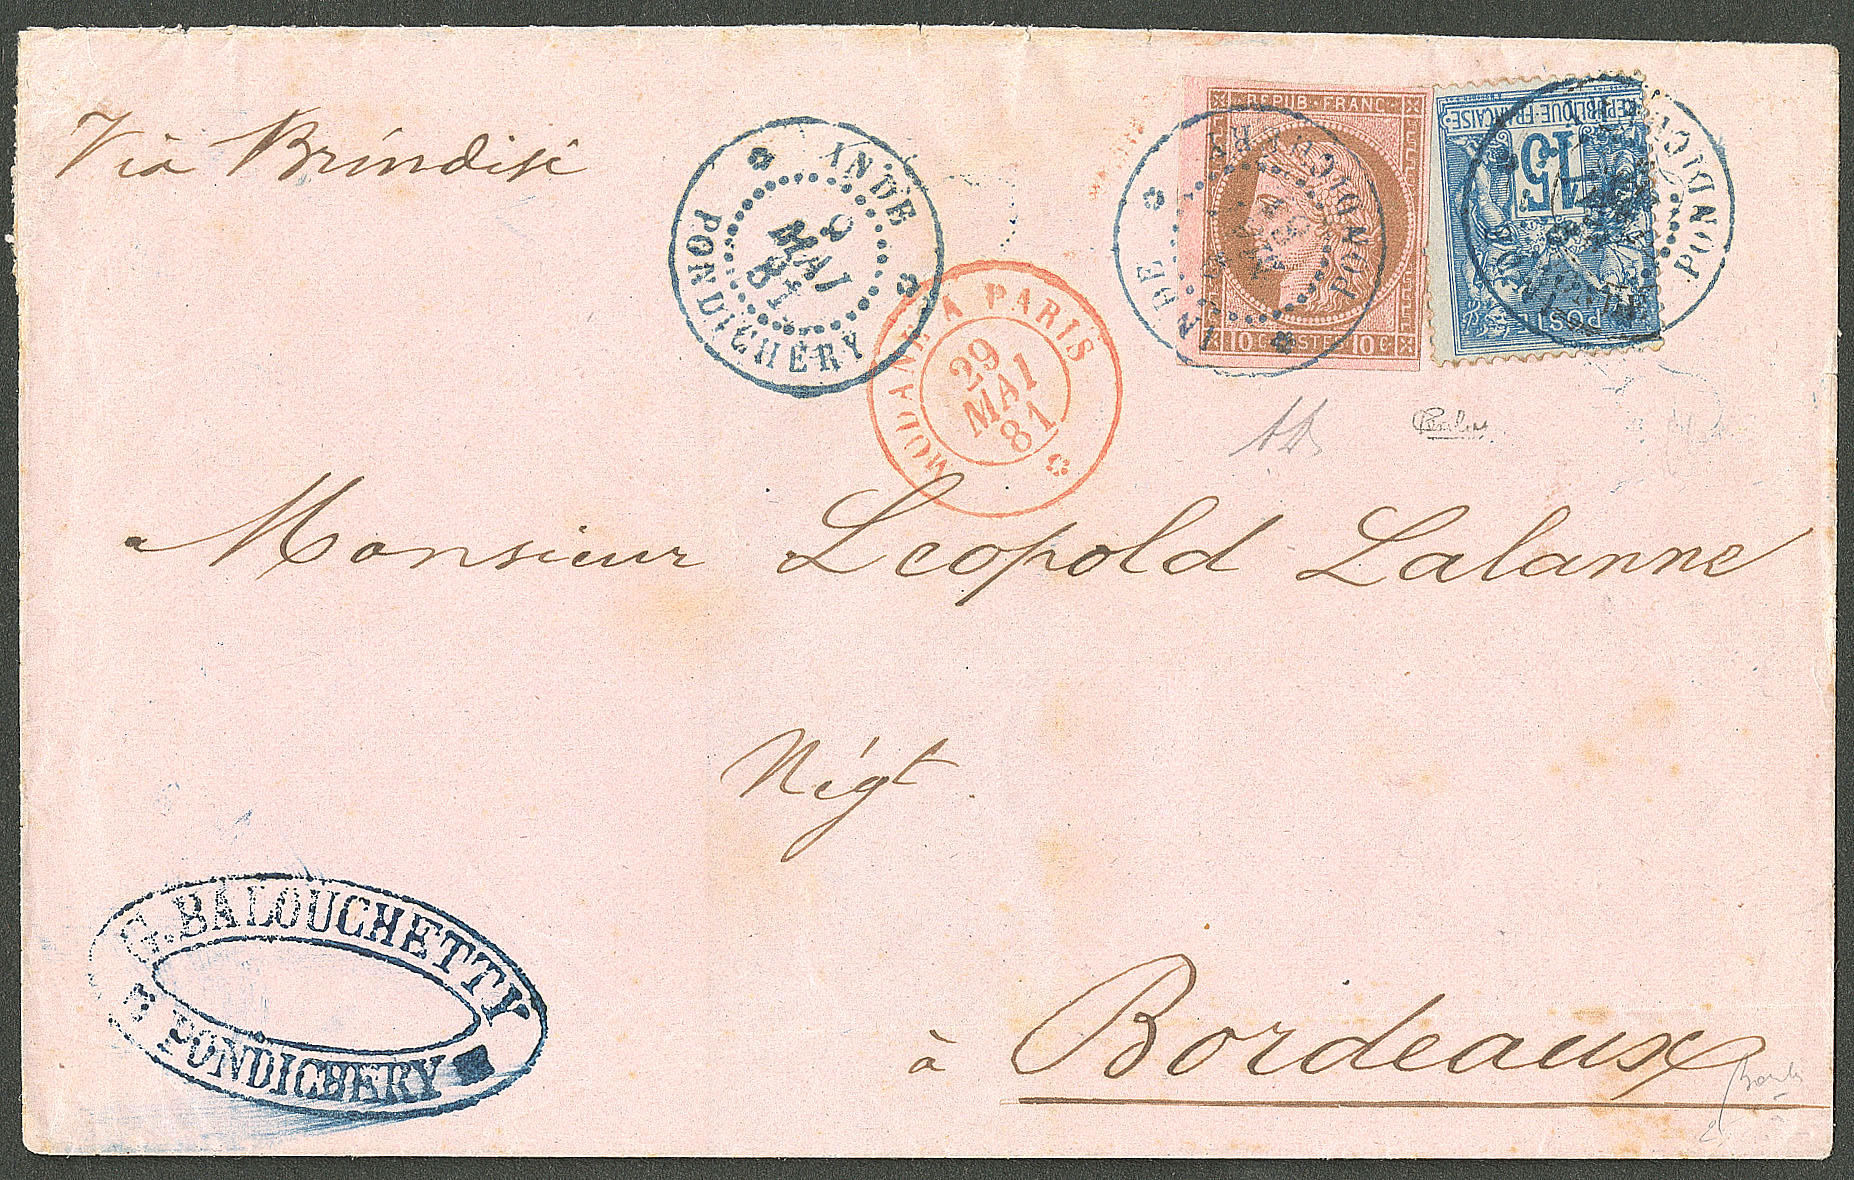 Via Brindisi
INDE
9
MAI
81
PONDICHÉRY
MODANE A PARIS
29
MAI
81
REPUB · FRANC
10 C POSTES 10 C
INDE
PONDICHERY
REPUBLIQUE · FRANÇAISE
15
INDE
PONDICHERY
Monsieur Leopold Lalanne
Négt.
G. BALOUCHETTY
PONDICHERY
à Bordeaux